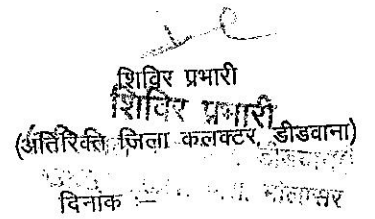 शिविर प्रभारी
शिविर प्रभारी
(अतिरिक्त जिला कलक्टर, डीडवाना)
डीडवाना
दिनांक :– मौलासर